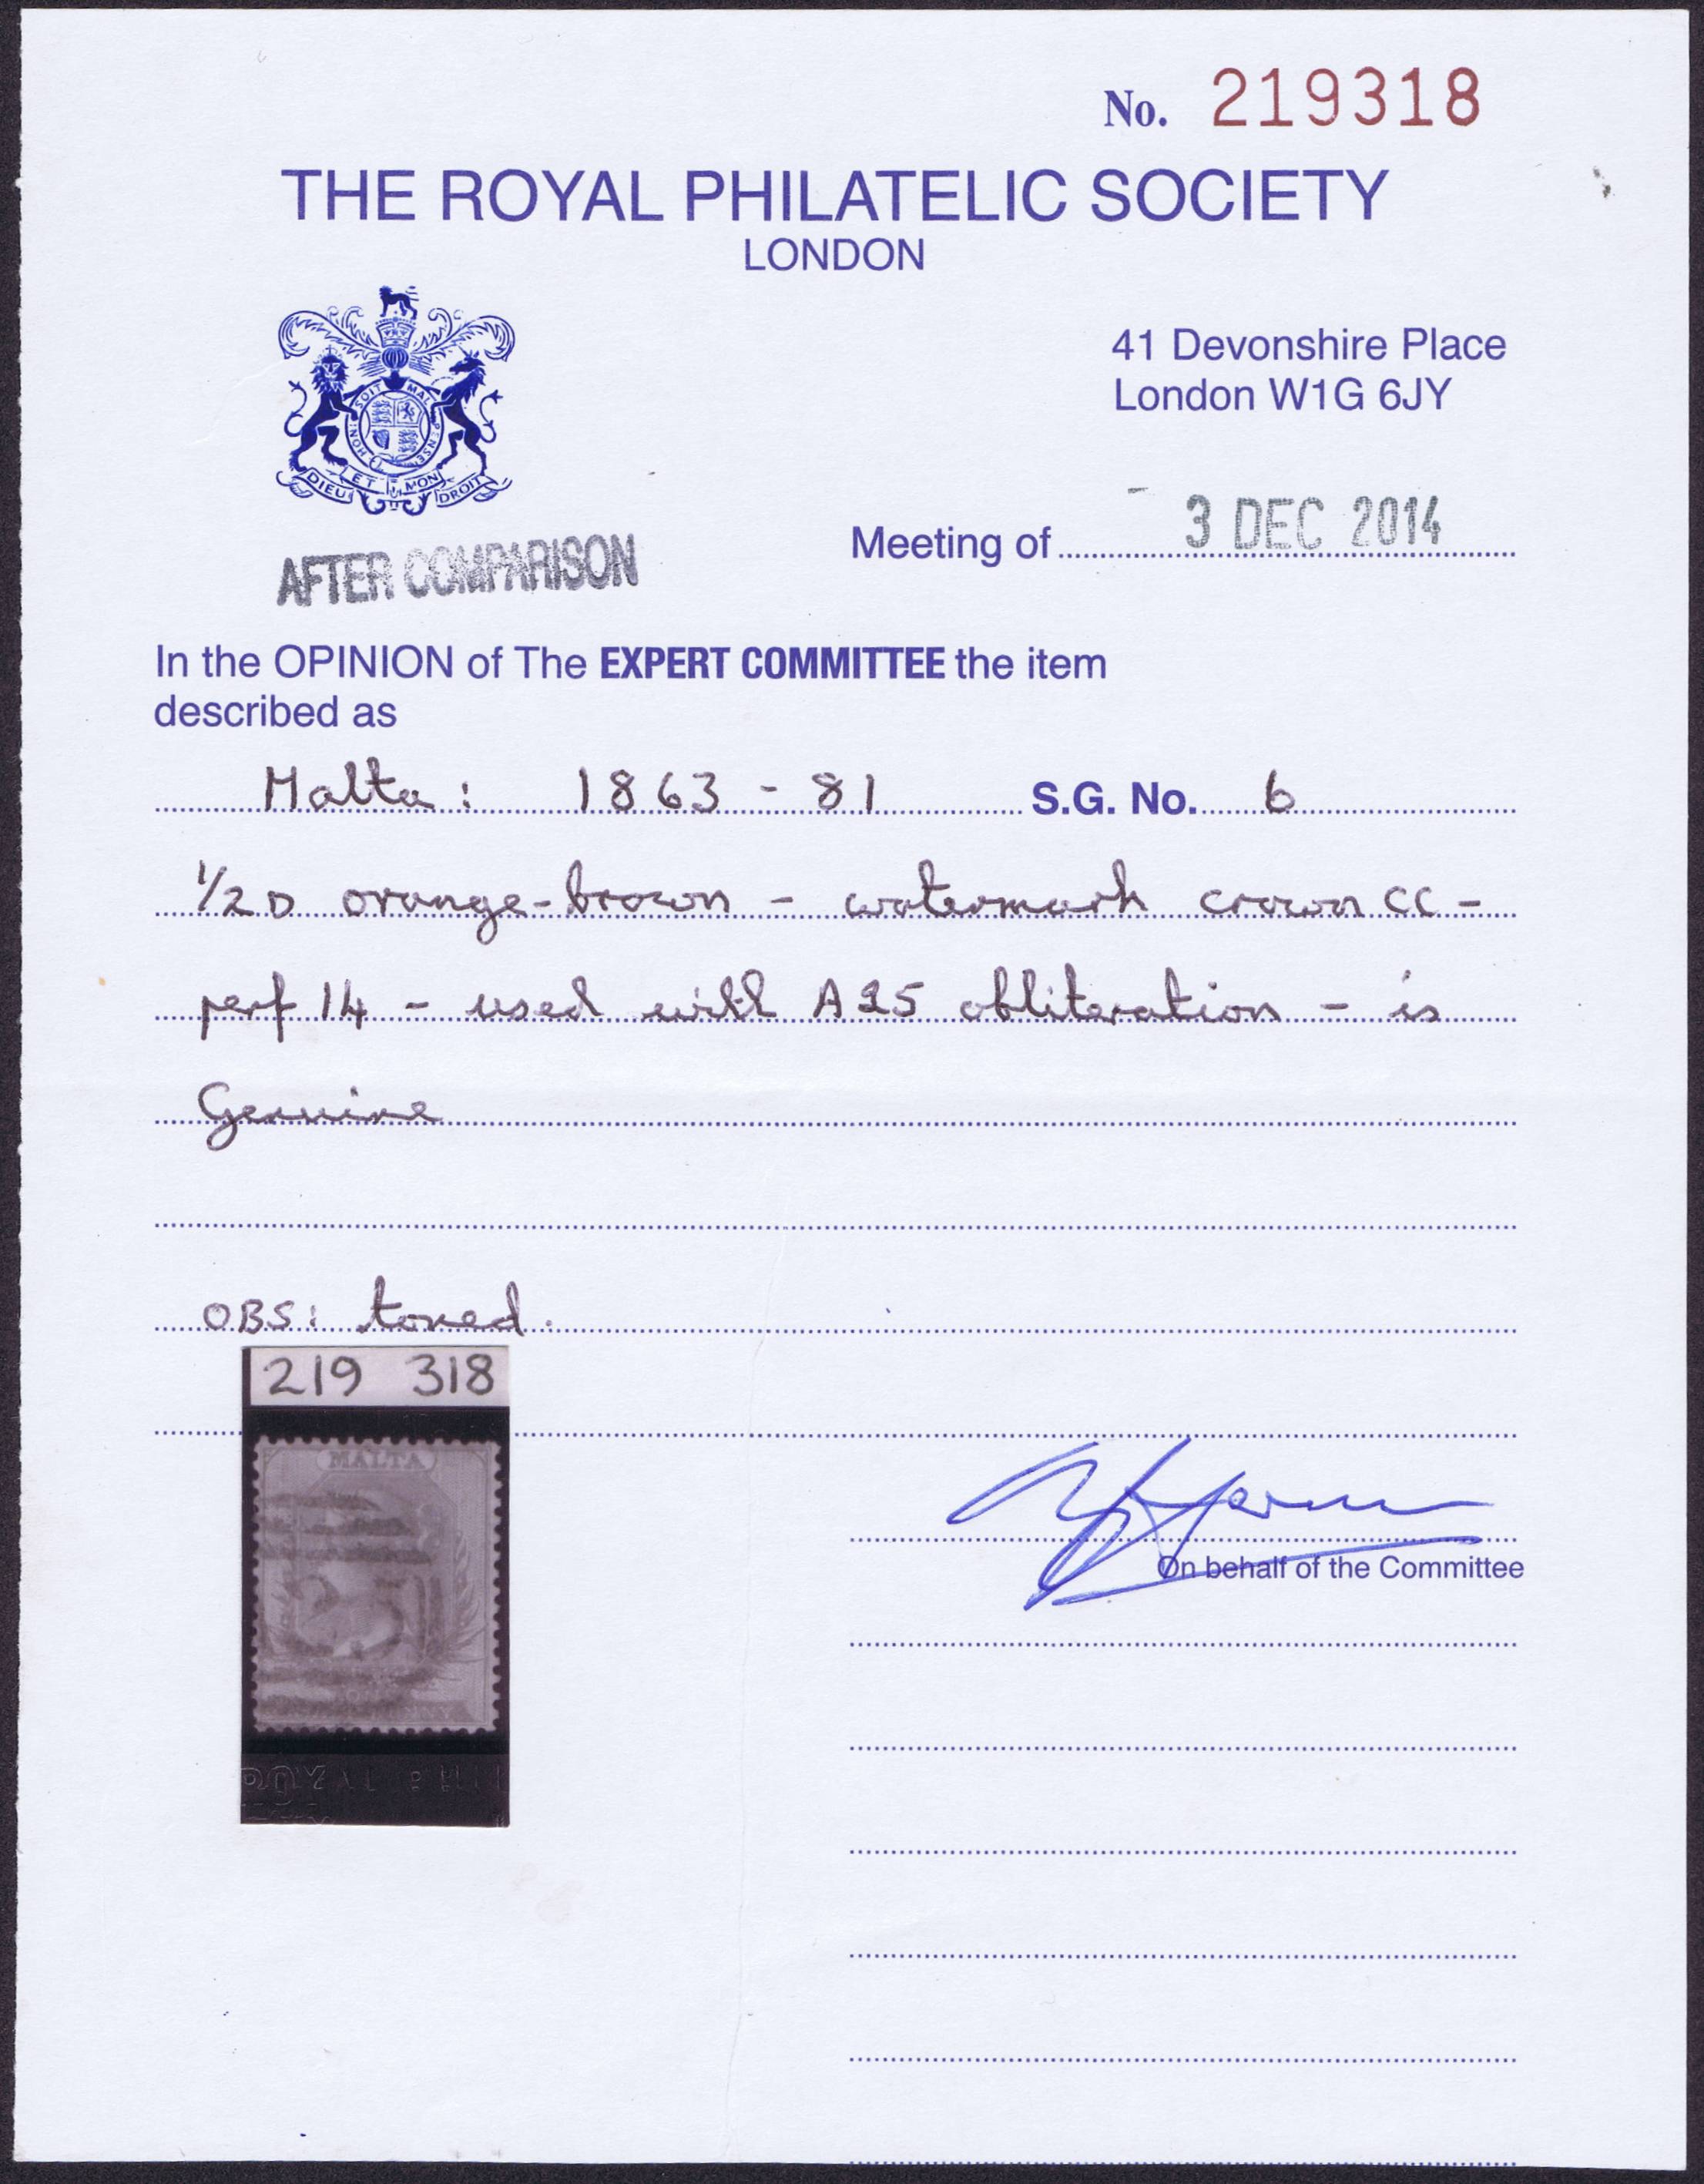 No. 219318
THE ROYAL PHILATELIC SOCIETY
LONDON
SOIT MAL PENSE HONI
DIEU ET MON DROIT
41 Devonshire Place
London W1G 6JY
Meeting of - 3 DEC 2014
AFTER COMPARISON
In the OPINION of The EXPERT COMMITTEE the item
described as
Malta: 1863-81 S.G. No. 6
1/2D orange-brown - watermark crown CC -
perf 14 - used with A25 obliteration - is
Genuine
OBS: toned.
219 318
MALTA
25
ROYAL PHIL
On behalf of the Committee